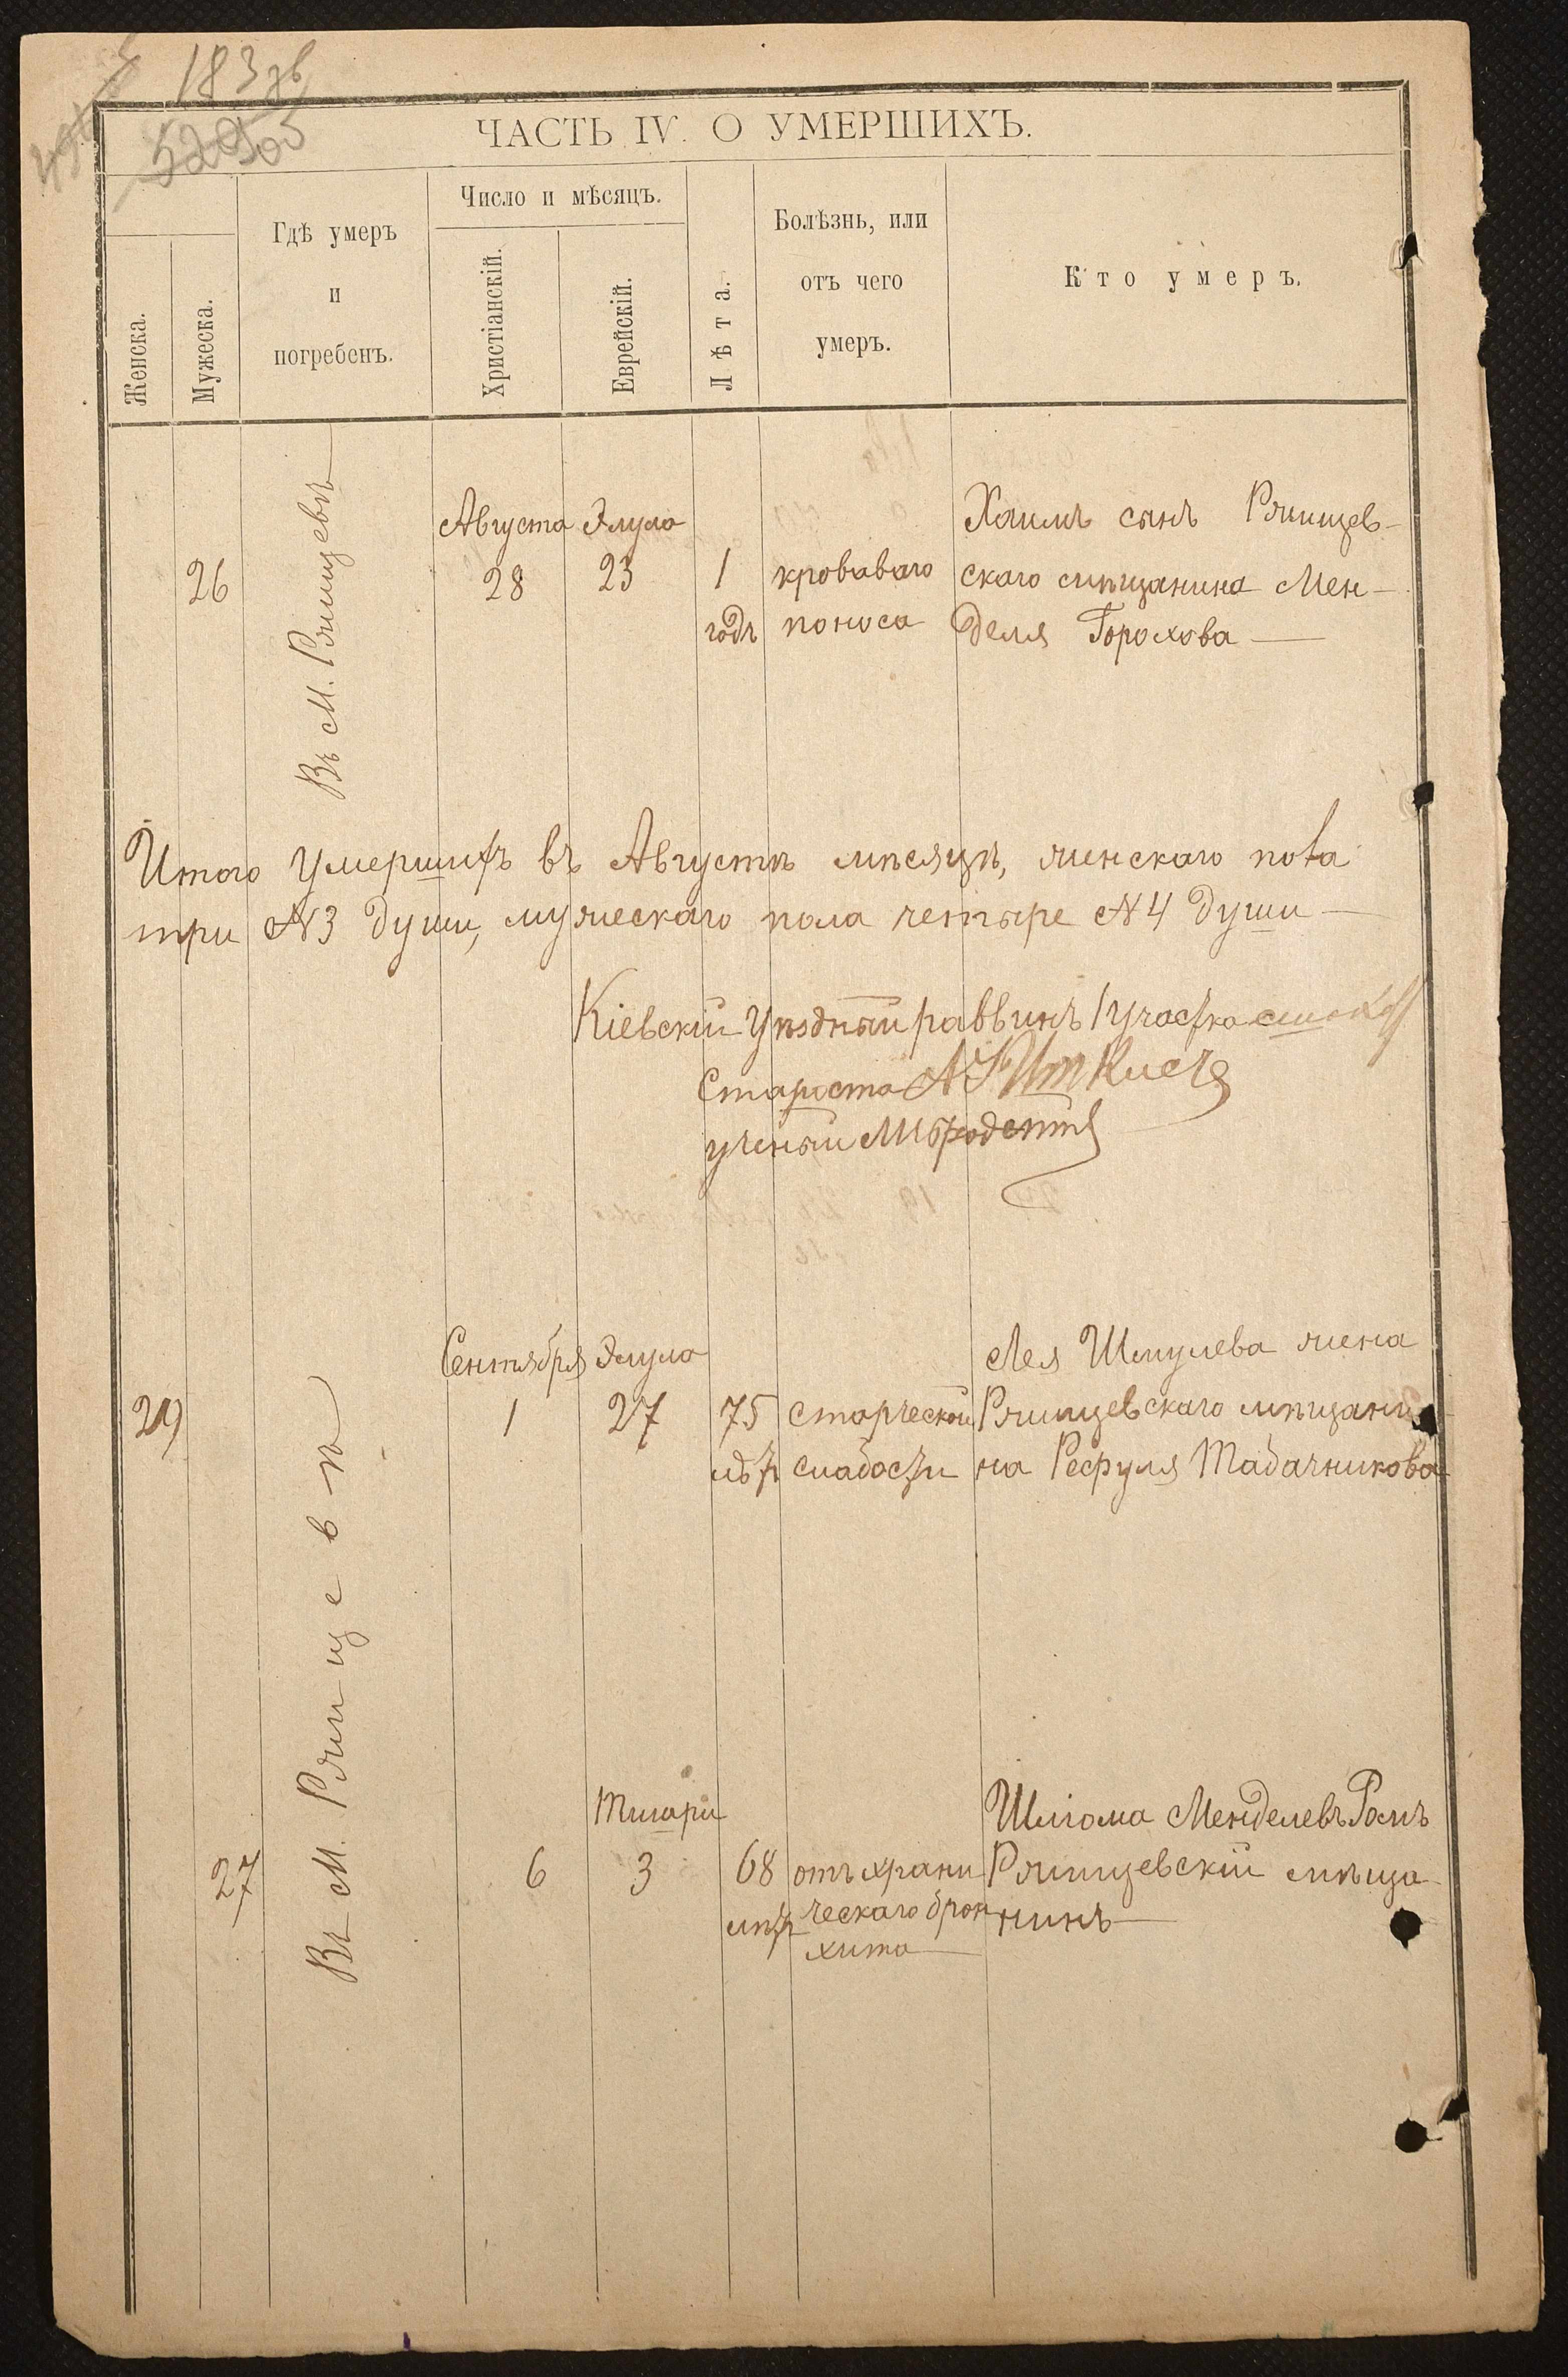 183 зв
ЧАСТЬ IV. О УМЕРШИХЪ.
Женска.
Мужеска.
Гдѣ умеръ
и
погребенъ.
Число и мѣсяцъ.
Христіанскій.
Еврейскій.
Лѣта.
Болѣзнь, или
отъ чего
умеръ.
Кто умеръ.
26
Въ М. Ржищевѣ
Августа
28
Элула
23
1
годъ
кроваваго
поноса
Хаимъ сынъ Ржищев-
скаго мѣщанина Мен-
деля Горохова
Итого умершихъ въ Августѣ мѣсяцѣ, женскаго пола
три № 3 души, мужескаго пола четыре № 4 души
Кіевскій Уѣздный раввинъ 1 участка
Староста
ученый
29
Въ М. Ржищевѣ
Сентября
1
Элула
27
75
лѣтъ
старческой
слабости
Лея Шмулева жена
Ржищевскаго мѣщани-
на Рефуля Табачникова
27
6
Тишри
3
68
лѣтъ
отъ храни
ческаго брон
хита
Шліома Менделевъ Ромъ
Ржищевскій мѣща-
нинъ